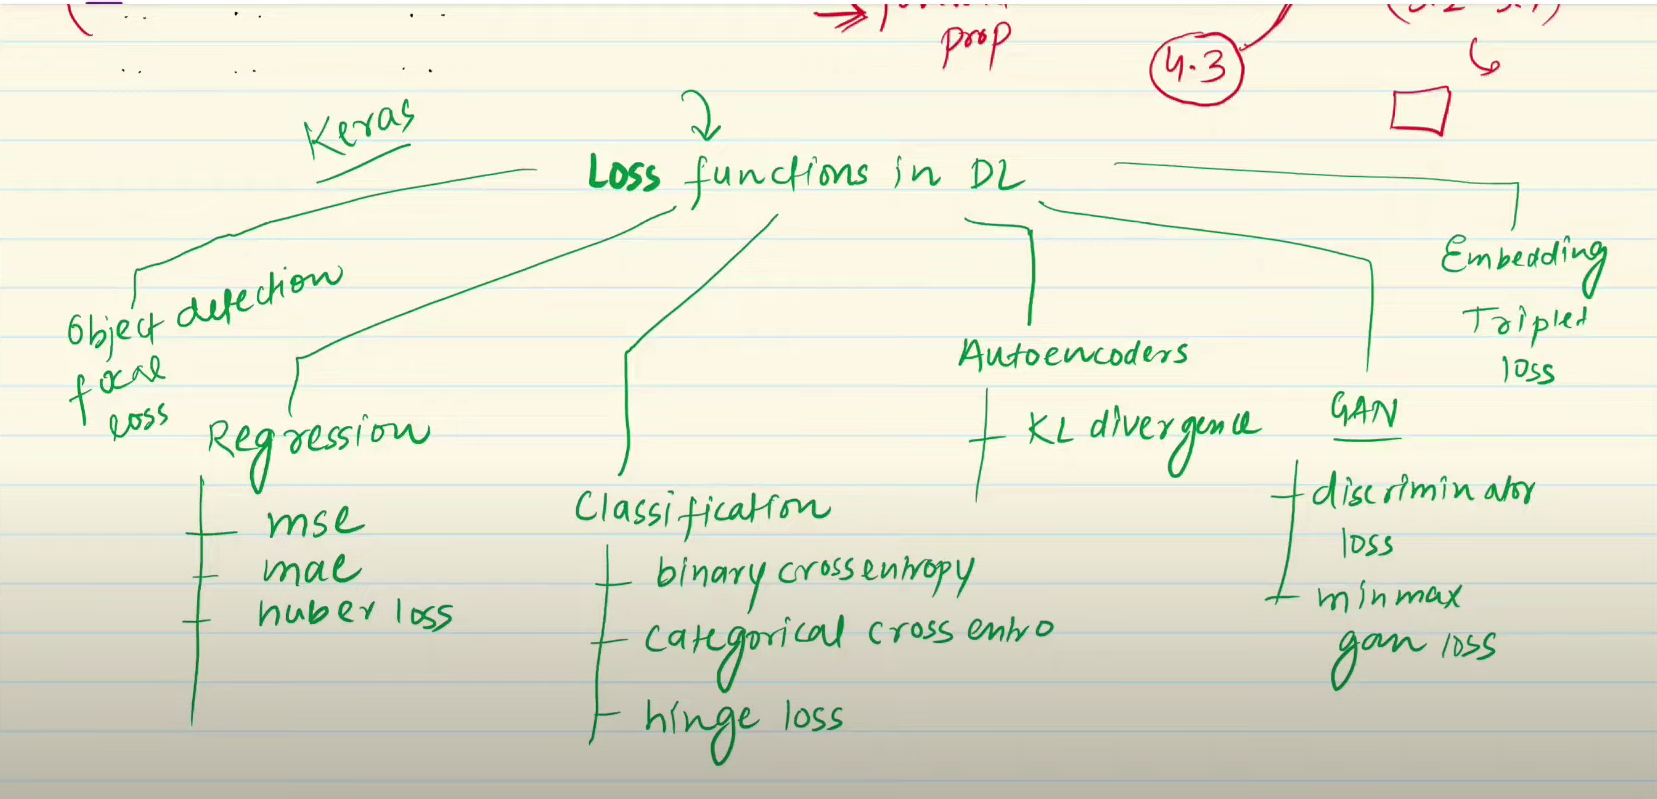 prop
4.3
Keras
Loss functions in DL
Object detection
focal
loss
Regression
mse
mae
huber loss
Classification
binary crossentropy
categorical cross entro
hinge loss
Autoencoders
KL divergence
GAN
discriminator
loss
minmax
gan loss
Embedding
Triplet
loss